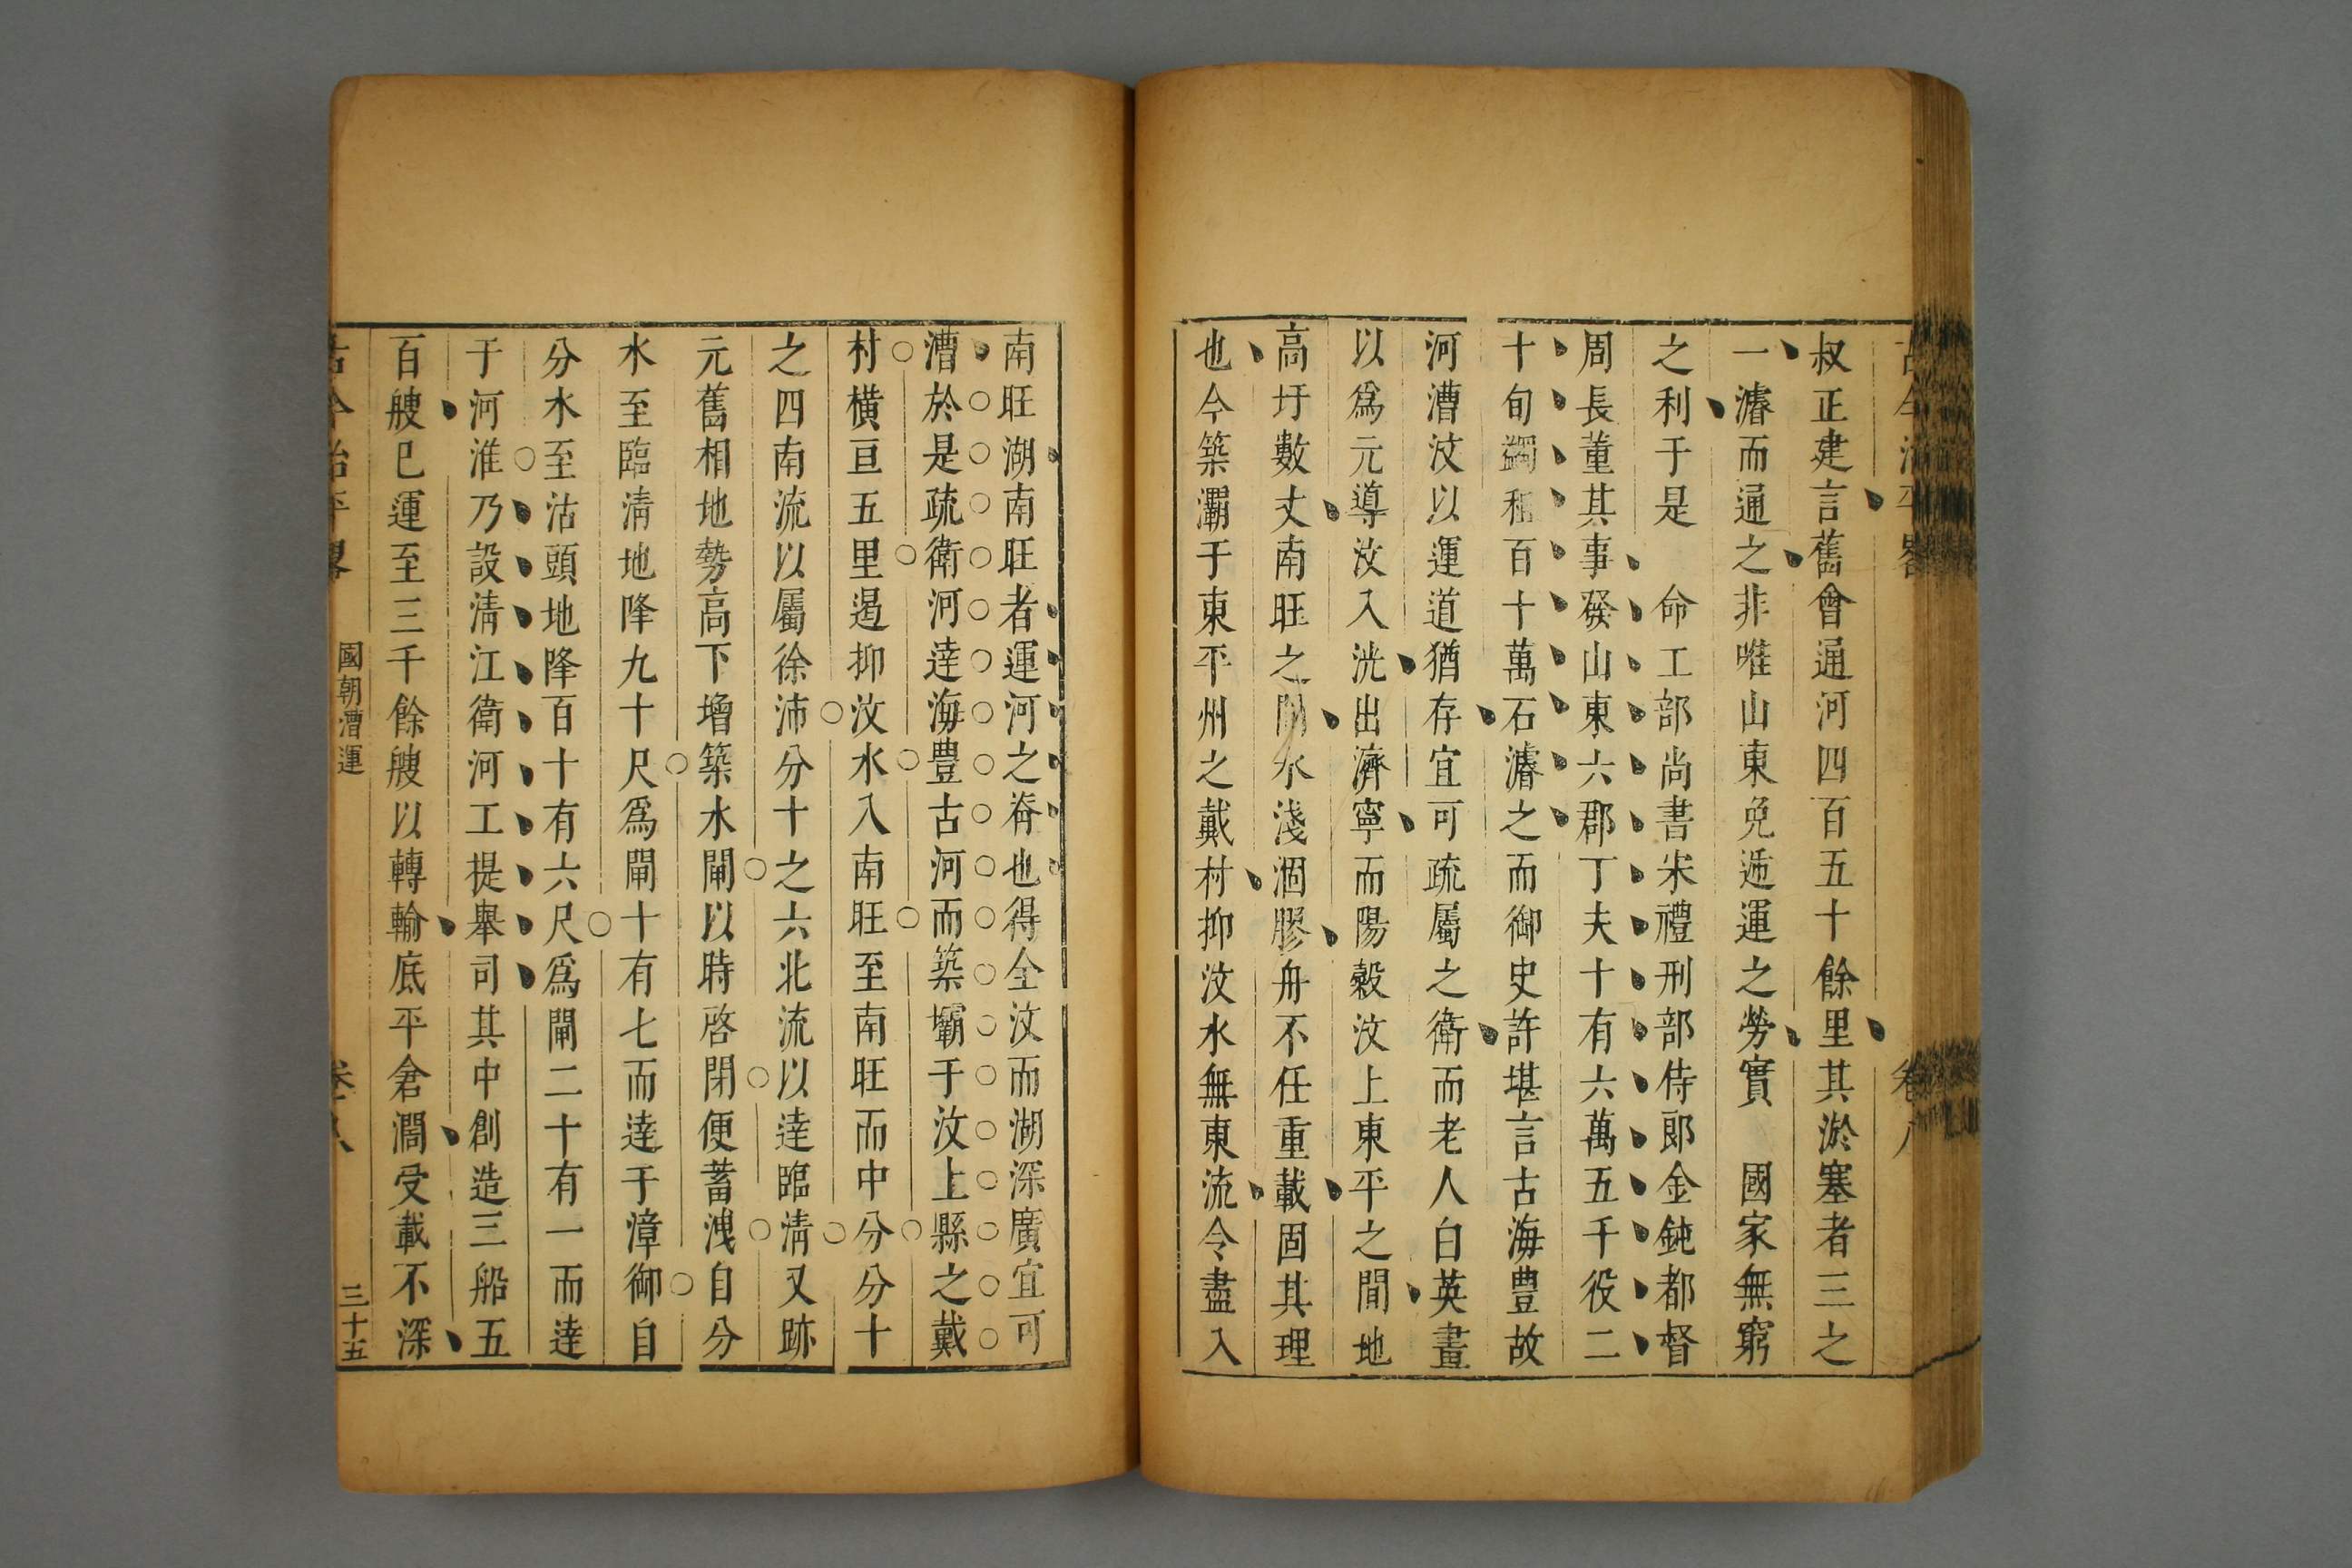 叔正建言舊會通河四百五十餘里其淤塞者三之
一濬而通之非唯山東免遞運之勞實　國家無窮
之利于是　命工部尚書宋禮刑部侍郎金純都督
周長董其事發山東六郡丁夫十有六萬五千役二
十旬蠲租百十萬石濬之而御史許堪言古海豊故
河漕汶以運道猶存宜可疏屬之衛而老人白英畫
以爲元導汶入洸出濟寧而陽穀汶上東平之間地
高圩數丈南旺之間水淺涸膠舟不任重載固其理
也今築灞于東平州之戴村抑汶水無東流令盡入
南旺湖南旺者運河之脊也得全汶而湖深廣宜可
漕於是疏衛河達海豊古河而築壩于汶上縣之戴
村横亘五里遏抑汶水入南旺至南旺而中分分十
之四南流以屬徐沛分十之六北流以達臨淸又跡
元舊相地勢高下增築水閘以時啓閉便蓄洩自分
水至臨淸地降九十尺爲閘十有七而達于漳御自
分水至沽頭地降百十有六尺爲閘二十有一而達
于河淮乃設淸江衛河工提舉司其中創造三船五
百艘已運至三千餘艘以轉輸底平倉濶受載不深
古今治平畧　國朝漕運　卷八　三十五